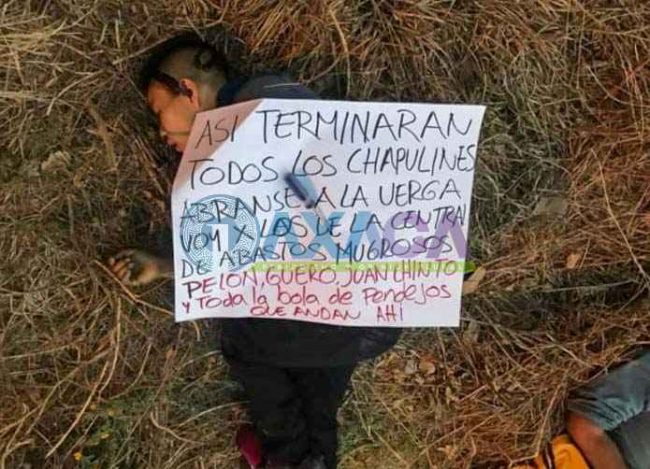 ASI TERMINARAN
TODOS LOS CHAPULINES
ABRANSE A LA VERGA
VOY X LOS DE LA CENTRAL
DE ABASTOS MUGROSOS
PELON, GUERO, JUAN CHINTO
Y Toda la bola de Pendejos
QUE ANDAN AHI
OAXACA